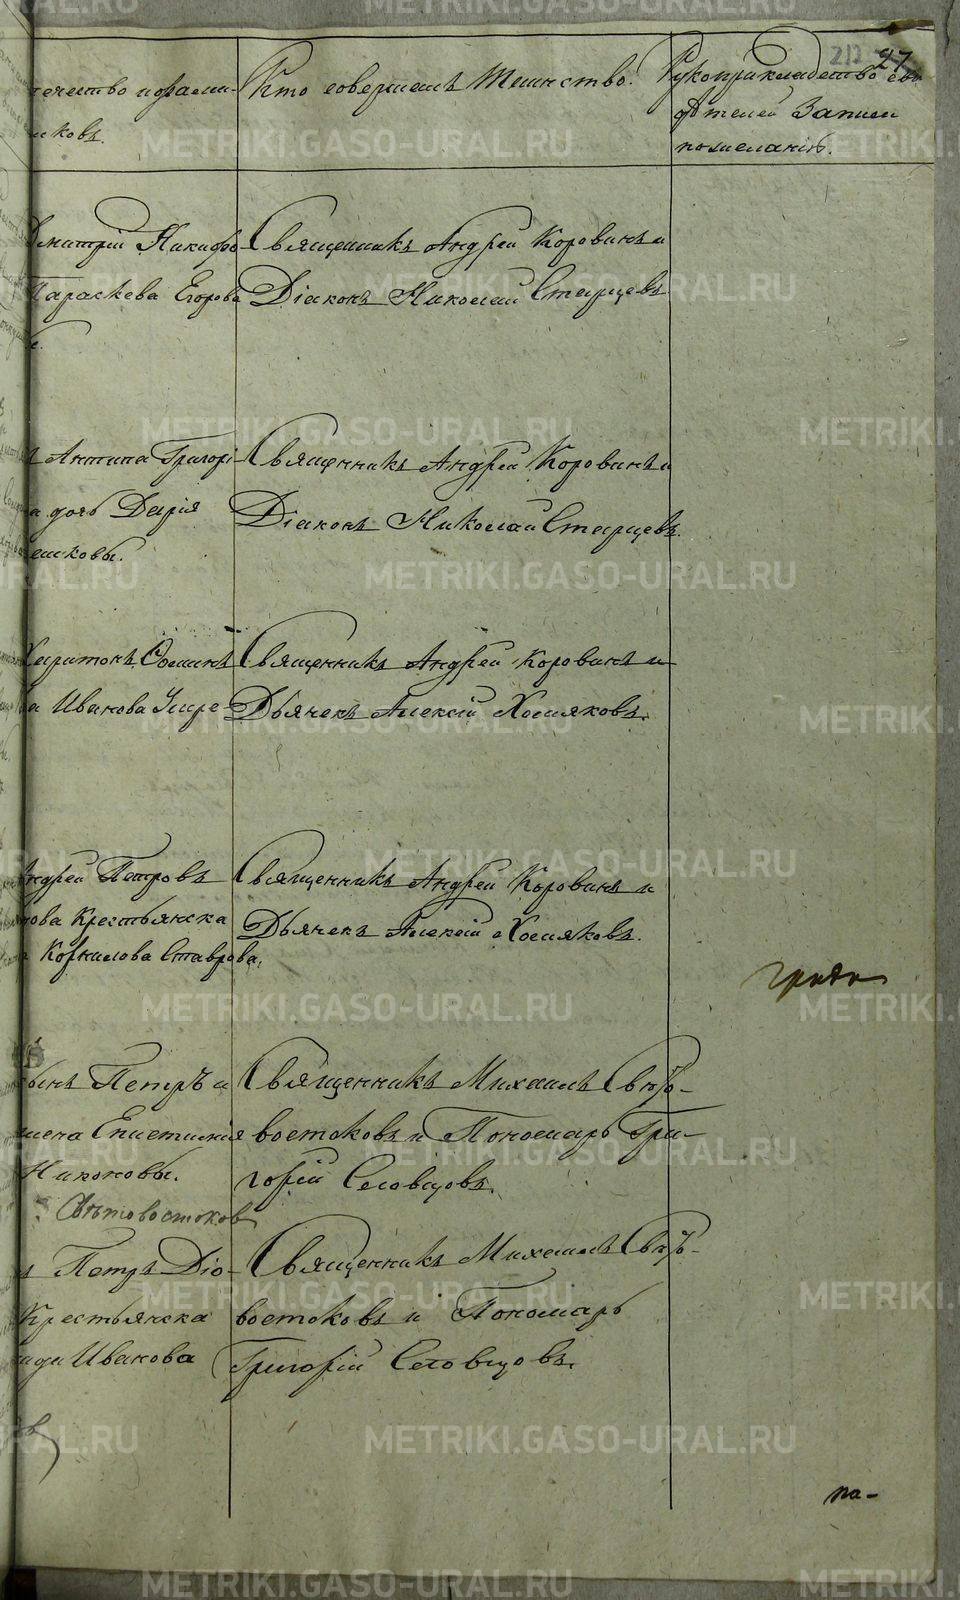 212 27
течество и фамил-
иковъ.
Кто совершалъ Таинство.
Рукоприкладство сви
дѣтелей Записи
по желанію.
Дмитрій Никифо-
Параскева Егорова
Священникъ Андрей Коровинъ и
Діаконъ Николай Старцевъ
ъ Антипа Григорі-
а дочь Дарія
ешковы.
Священникъ Андрей Коровинъ и
Діаконъ Николай Старцевъ.
Харитонъ Ѳоминъ
ва Иванова Ушре-
Священникъ Андрей Коровинъ и
Дьячекъ Алексій Хомяковъ.
Андрей Петровъ
нова Крестьянска
Корнилова Ставрова.
Священникъ Андрей Коровинъ и
Дьячекъ Алексій Хомяковъ.
града
сынъ Петръ и
Епистимія
Никоновы.
Свѣтовостоков
Священникъ Михаилъ Свѣто-
востоковъ и Пономарь Гри-
горій Словцовъ.
ъ Петръ Діо-
Крестьянска
Иванова
Священникъ Михаилъ Свѣто-
востоковъ и Пономарь
Григорій Словцовъ.
па-
METRIKI.GASO-URAL.RU